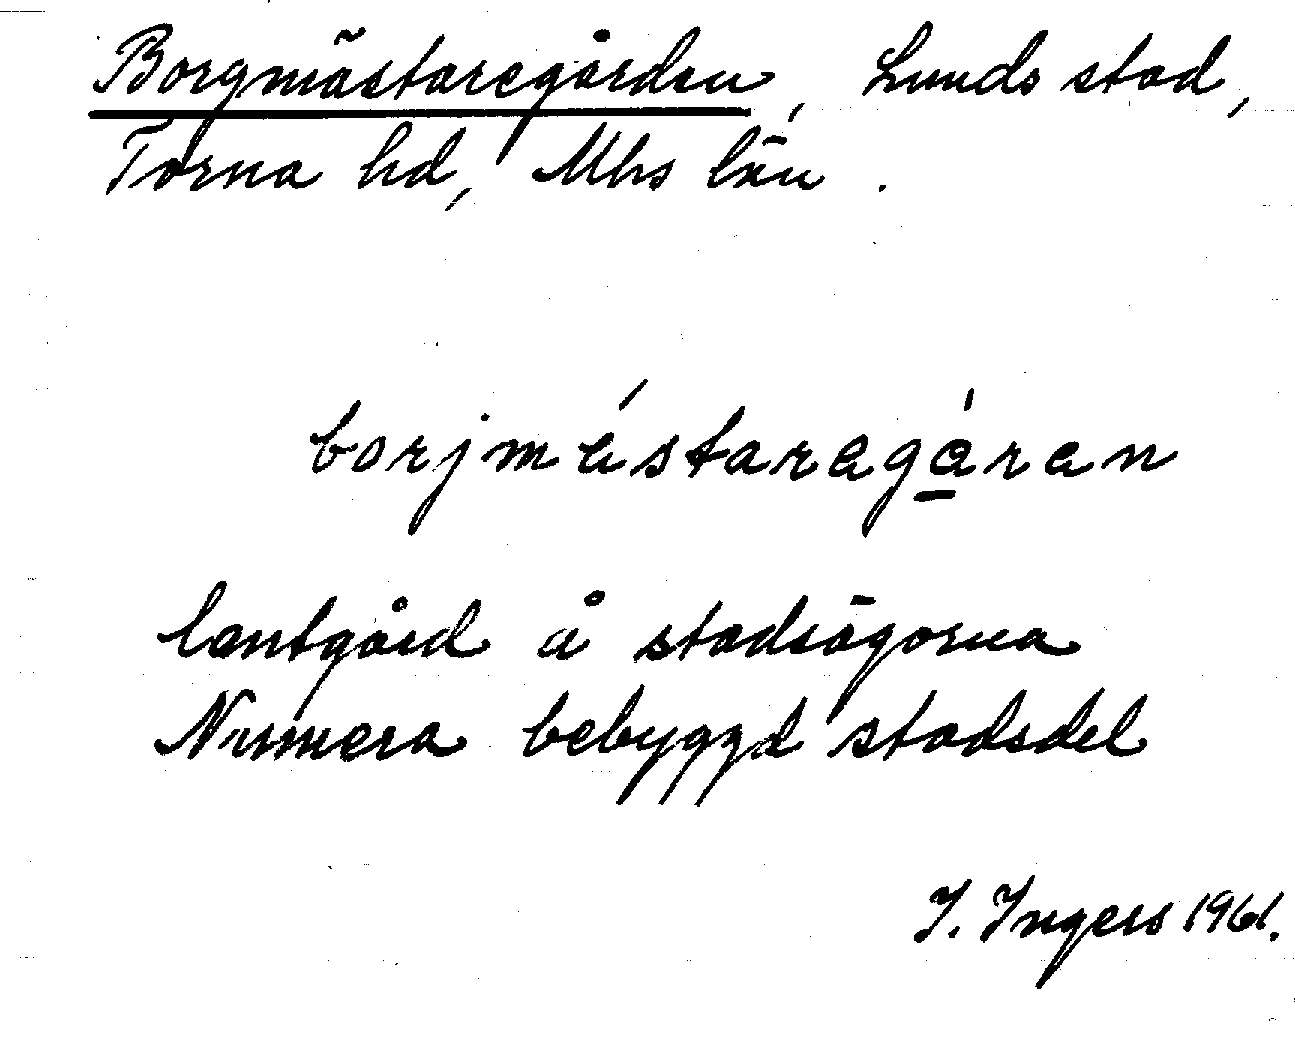 Borgmästaregården, Lunds stad,
Torna hd, Mhs län.
borjmästaragáran
lantgård å stadsägorna
Numera bebyggd stadsdel
I. Ingers 1961.